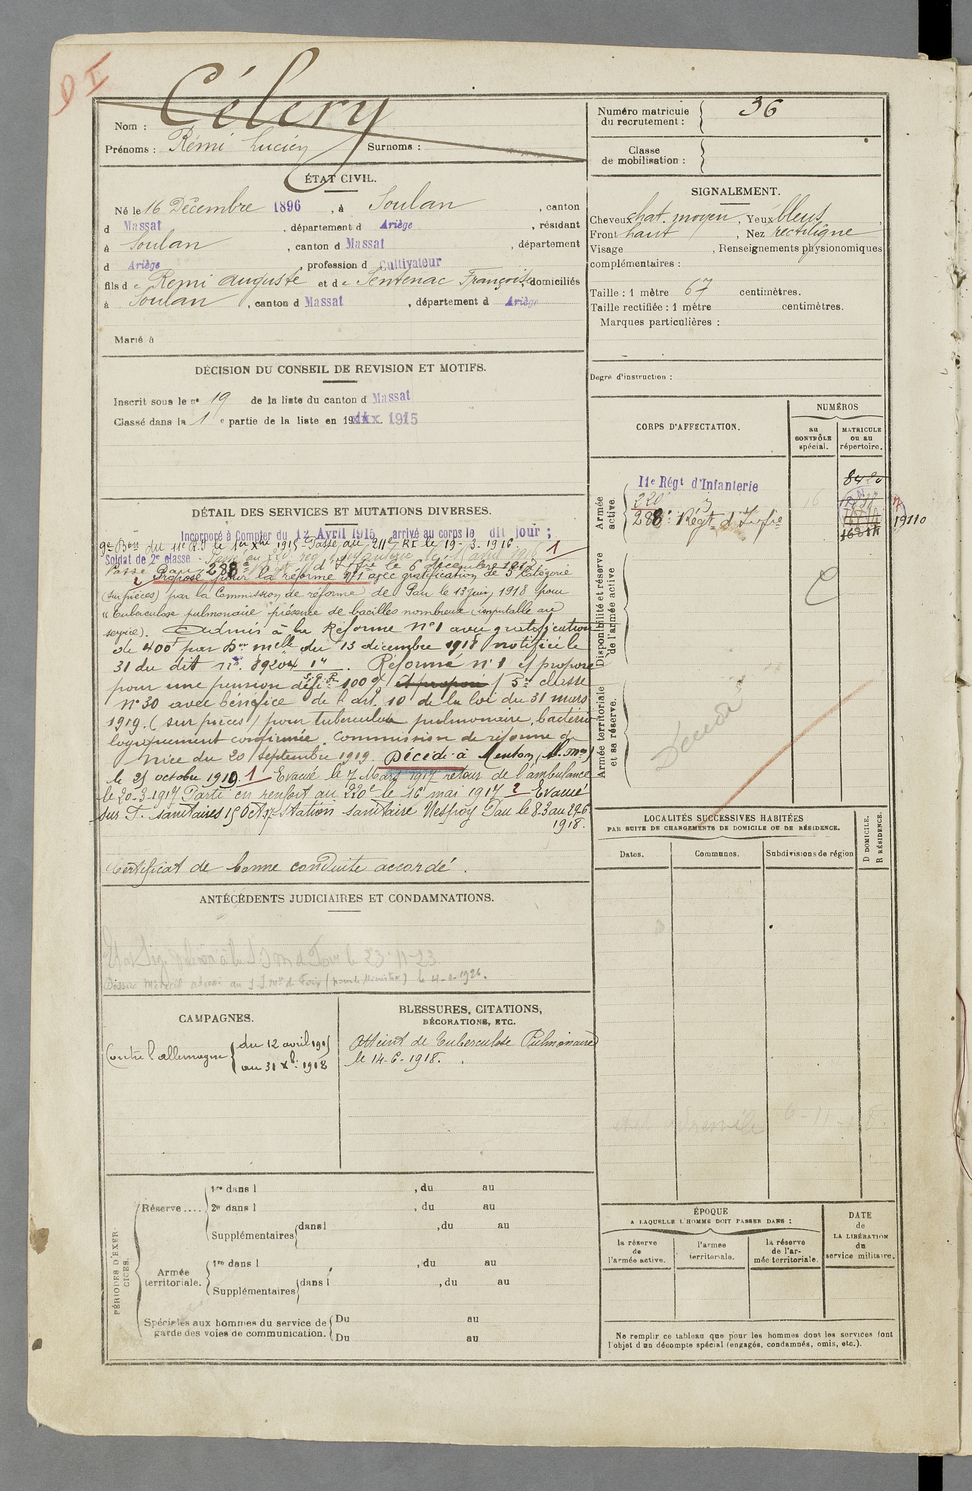 D I
Célery
Nom :
Prénoms : Rémi Lucien Surnoms :
ÉTAT CIVIL.
Né le 16 Décembre 1896 , à Soulan , canton
d Massat , département d Ariège , résidant
à Soulan , canton d Massat , département
d Ariège , profession d Cultivateur
fils de Rémi Auguste et de Sentenac Françoise domiciliés
à Soulan , canton d Massat , département d Ariège
Marié à
DÉCISION DU CONSEIL DE REVISION ET MOTIFS.
Inscrit sous le nº 19 de la liste du canton d Massat
Classé dans la 1 e partie de la liste en 1915
DÉTAIL DES SERVICES ET MUTATIONS DIVERSES.
Incorporé à Compter du 12 Avril 1915 arrivé au corps le dit jour ;
Soldat de 2e classe
du 11e R.I. le 1er Xbre 1915. Passé au 211e RI le 19-3-1916. 1
Passé 288e d'Infie le 6 décembre
2 Proposé pour la réforme nº1 avec gratification de 5e Catégorie
(sur pièces) par la Commission de réforme de Pau le 13 juin 1918 pour
"Tuberculose pulmonaire" présence de bacilles nombreux (imputable au
service). Admis à la Réforme Nº1 avec gratification
de 400f par Don melle du 13 décembre 1918 notifiée le
31 du dit nº 89204 1r. Réformé nº1 et proposé
pour une pension défi. 100 % et proposé / 5e classe
Nº30 avec bénéfice de l'art. 10 de la loi du 31 mars
1919. (sur pièces) pour tuberculose pulmonaire, bactério
logiquement confirmée. Commission de réforme de
Nice du 20 septembre 1919. Décédé à Menton (A. Mmes)
le 25 octobre 1919. 1 Evacué le 7 Mars 1917 retour de l'ambulance
le 20-3-1917 Parti en renfort au 220e le 16 mai 1917 2 Evacué
sur F. sanitaires 15 Oct 17 Station sanitaire Pau le 8-3 au 29-6
1918.
Certificat de bonne conduite accordé.
ANTÉCÉDENTS JUDICIAIRES ET CONDAMNATIONS.
le 23-11-23
CAMPAGNES.
Contre l'allemagne { du 12 avril 1915
au 31 Xbre 1918
BLESSURES, CITATIONS,
DÉCORATIONS, ETC.
Atteint de Tuberculose Pulmonaire
le 14-6-1918.
PÉRIODES D'EXERCICES.
Réserve .... { 1re dans l , du au
2e dans l , du au
Supplémentaires { dans l , du au
Armée territoriale. { 1re dans l , du au
Supplémentaires { dans l , du au
Spéciales aux hommes du service de garde des voies de communication. { Du au
Du au
Numéro matricule du recrutement : } 36
Classe de mobilisation : }
SIGNALEMENT.
Cheveux chat. moyen , Yeux bleus ,
Front haut , Nez rectiligne
Visage , Renseignements physionomiques
complémentaires :
Taille : 1 mètre 67 centimètres.
Taille rectifiée : 1 mètre centimètres.
Marques particulières :
Degré d'instruction :
CORPS D'AFFECTATION.
NUMÉROS
au CONTRÔLE spécial.
MATRICULE ou au répertoire.
Armée active.
11e Régt d'Infanterie
220e
288e Régt d'Infie
19110
Disponibilité et réserve de l'armée active
Armée territoriale et sa réserve.
Décédé
LOCALITÉS SUCCESSIVES HABITÉES
PAR SUITE DE CHANGEMENTS DE DOMICILE OU DE RÉSIDENCE.
Dates.
Communes.
Subdivisions de région
D DOMICILE.
R RÉSIDENCE.
ÉPOQUE
A LAQUELLE L'HOMME DOIT PASSER DANS :
la réserve de l'armée active.
l'armée territoriale.
la réserve de l'armée territoriale.
DATE
de
LA LIBÉRATION
du
service militaire.
Ne remplir ce tableau que pour les hommes dont les services font
l'objet d'un décompte spécial (engagés, condamnés, omis, etc.).